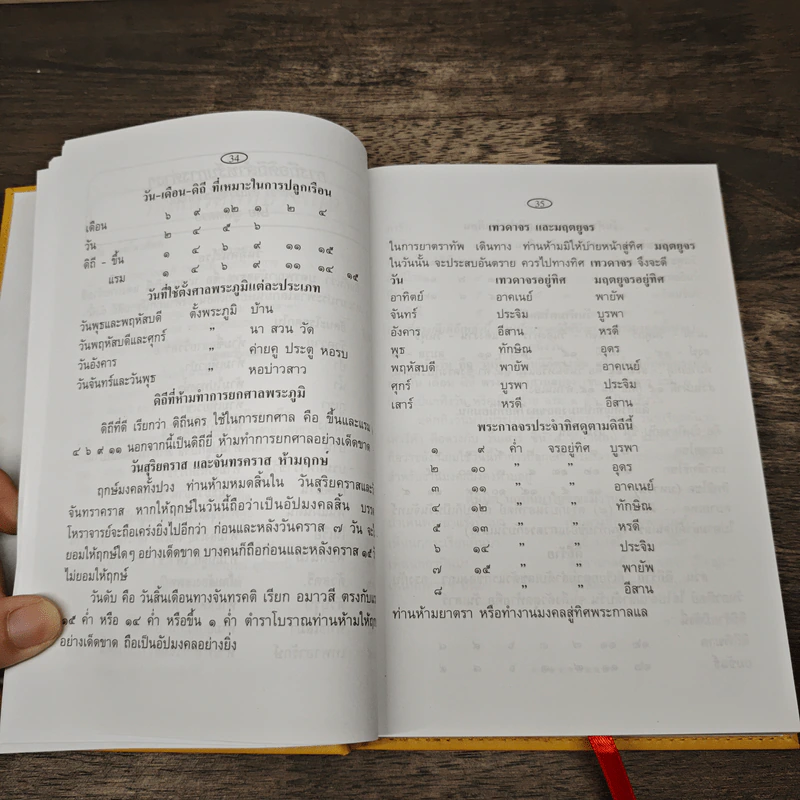 34
วัน-เดือน-ดิถี ที่เหมาะในการปลูกเรือน
เดือน ๖ ๙ ๑๒ ๑ ๒ ๔
วัน ๒ ๔ ๕ ๖
ดิถี - ขึ้น ๑ ๔ ๖ ๙ ๑๑ ๑๕
แรม ๑ ๔ ๖ ๙ ๑๑ ๑๔ ๑๕
วันที่ใช้ตั้งศาลพระภูมิแต่ละประเภท
วันพุธและพฤหัสบดี ตั้งพระภูมิ บ้าน
วันพฤหัสบดีและศุกร์ " นา สวน วัด
วันอังคาร " ค่ายคู ประตู หอรบ
วันจันทร์และวันพุธ " หอบ่าวสาว
ดิถีที่ห้ามทำการยกศาลพระภูมิ
ดิถีที่ดี เรียกว่า ดิถีนคร ใช้ในการยกศาล คือ ขึ้นและแรม
๔ ๖ ๙ ๑๑ นอกจากนี้เป็นดิถียี่ ห้ามทำการยกศาลอย่างเด็ดขาด
วันสุริยคราส และจันทรคราส ห้ามฤกษ์
ฤกษ์มงคลทั้งปวง ท่านห้ามหมดสิ้นใน วันสุริยคราสและ
จันทราคราส หากให้ฤกษ์ในวันนี้ถือว่าเป็นอัปมงคลสิ้น
โหราจารย์จะถือเคร่งยิ่งไปอีกว่า ก่อนและหลังวันคราส ๗ วัน
ยอมให้ฤกษ์ใดๆ อย่างเด็ดขาด บางคนก็ถือก่อนและหลังคราส ๑๕
ไม่ยอมให้ฤกษ์
วันดับ คือ วันสิ้นเดือนทางจันทรคติ เรียก อมาวสี ตรงกับ
๑๕ ค่ำ หรือ ๑๔ ค่ำ หรือขึ้น ๑ ค่ำ ตำราโบราณท่านห้ามให้ฤกษ์
อย่างเด็ดขาด ถือเป็นอัปมงคลอย่างยิ่ง
35
เทวดาจร และมฤตยูจร
ในการยาตราทัพ เดินทาง ท่านห้ามมิให้บ่ายหน้าสู่ทิศ มฤตยูจร
ในวันนั้น จะประสบอันตราย ควรไปทางทิศ เทวดาจร จึงจะดี
วัน เทวดาจรอยู่ทิศ มฤตยูจรอยู่ทิศ
อาทิตย์ อาคเนย์ พายัพ
จันทร์ ประจิม บูรพา
อังคาร อีสาน หรดี
พุธ ทักษิณ อุดร
พฤหัสบดี พายัพ อาคเนย์
ศุกร์ บูรพา ประจิม
เสาร์ หรดี อีสาน
พระกาลจรประจำทิศดูตามดิถีนี้
๑ ๙ ค่ำ จรอยู่ทิศ บูรพา
๒ ๑๐ " " อุดร
๓ ๑๑ " " อาคเนย์
๔ ๑๒ " " ทักษิณ
๕ ๑๓ " " หรดี
๖ ๑๔ " " ประจิม
๗ ๑๕ " " พายัพ
๘ " " อีสาน
ท่านห้ามยาตรา หรือทำงานมงคลสู่ทิศพระกาลแล